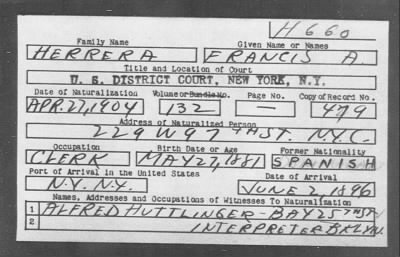 H 660
Family Name Given Name or Names
HERRERA FRANCIS A
Title and Location of Court
U. S. DISTRICT COURT, NEW YORK, N.Y.
Date of Naturalization Volume or Bundle No. Page No. Copy of Record No.
APR. 27, 1904 132 — 479
Address of Naturalized Person
229 W 97TH ST. N.Y.C.
Occupation Birth Date or Age Former Nationality
CLERK MAY 27, 1881 SPANISH
Port of Arrival in the United States Date of Arrival
N.Y. N.Y. JUNE 2, 1896
Names, Addresses and Occupations of Witnesses To Naturalization
1 ALFRED HUTTLINGER - BAY 25TH ST.
2 INTERPRETER BKLYN.